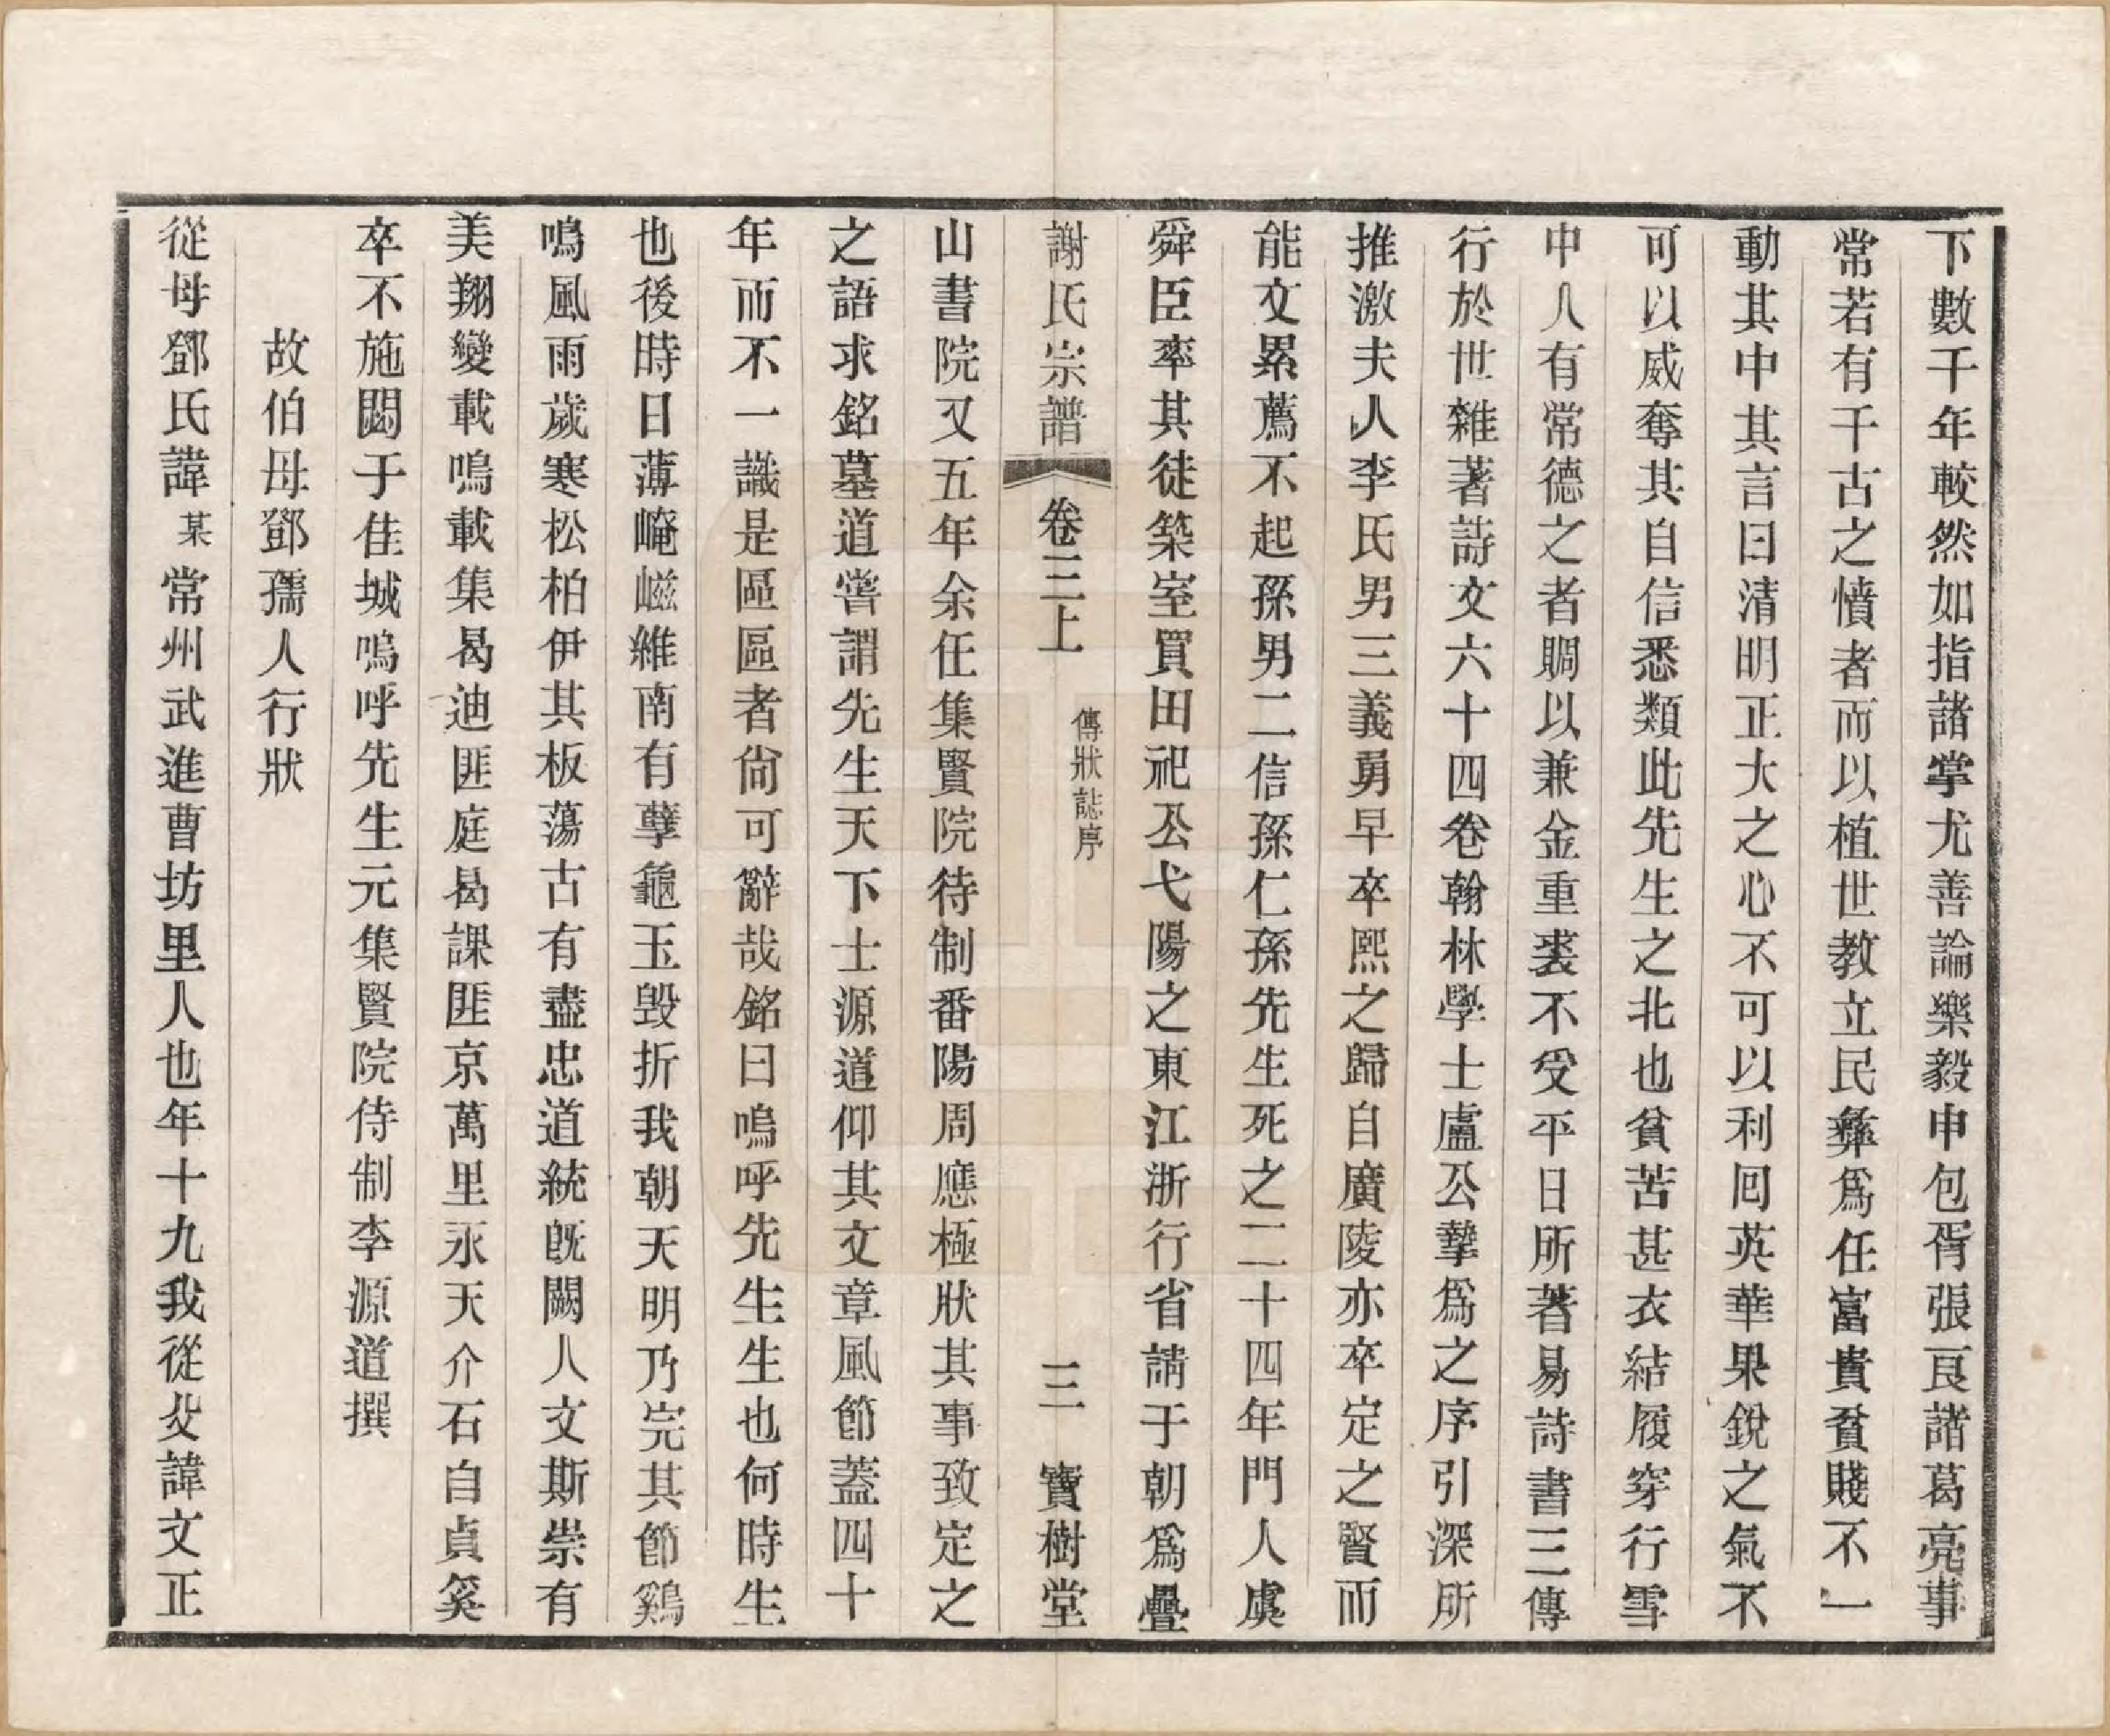 下數千年較然如指諸掌尤善論樂毅申包胥張良諸葛亮事
常若有千古之憤者而以植世教立民彝爲任富貴貧賤不一
動其中其言曰清明正大之心不可以利回英華果銳之氣不
可以威奪其自信悉類此先生之北也貧苦甚衣結履穿行雪
中人有常德之者賙以兼金重裘不受平日所著易詩書三傳
行於世雜著詩文六十四卷翰林學士盧公摯爲之序引深所
推激夫人李氏男三義勇早卒熙之歸自廣陵亦卒定之賢而
能文累薦不起孫男二信孫仁孫先生死之二十四年門人虞
舜臣率其徒築室買田祀公弋陽之東江浙行省請于朝爲疊
謝氏宗譜 卷三上 傳狀誌序 三 寶樹堂
山書院又五年余任集賢院待制番陽周應極狀其事致定之
之語求銘墓道嘗謂先生天下士源道仰其文章風節蓋四十
年而不一識是區區者尙可辭哉銘曰嗚呼先生生也何時生
也後時日薄崦嵫維南有孽龜玉毁折我朝天明乃完其節鷄
鳴風雨歲寒松柏伊其板蕩古有盡忠道統旣闕人文斯崇有
美翔變載鳴載集曷迪匪庭曷課匪京萬里永天介石自貞奚
卒不施閟于佳城嗚呼先生元集賢院侍制李源道撰
故伯母鄧孺人行狀
從母鄧氏諱某常州武進曹坊里人也年十九我從父諱文正